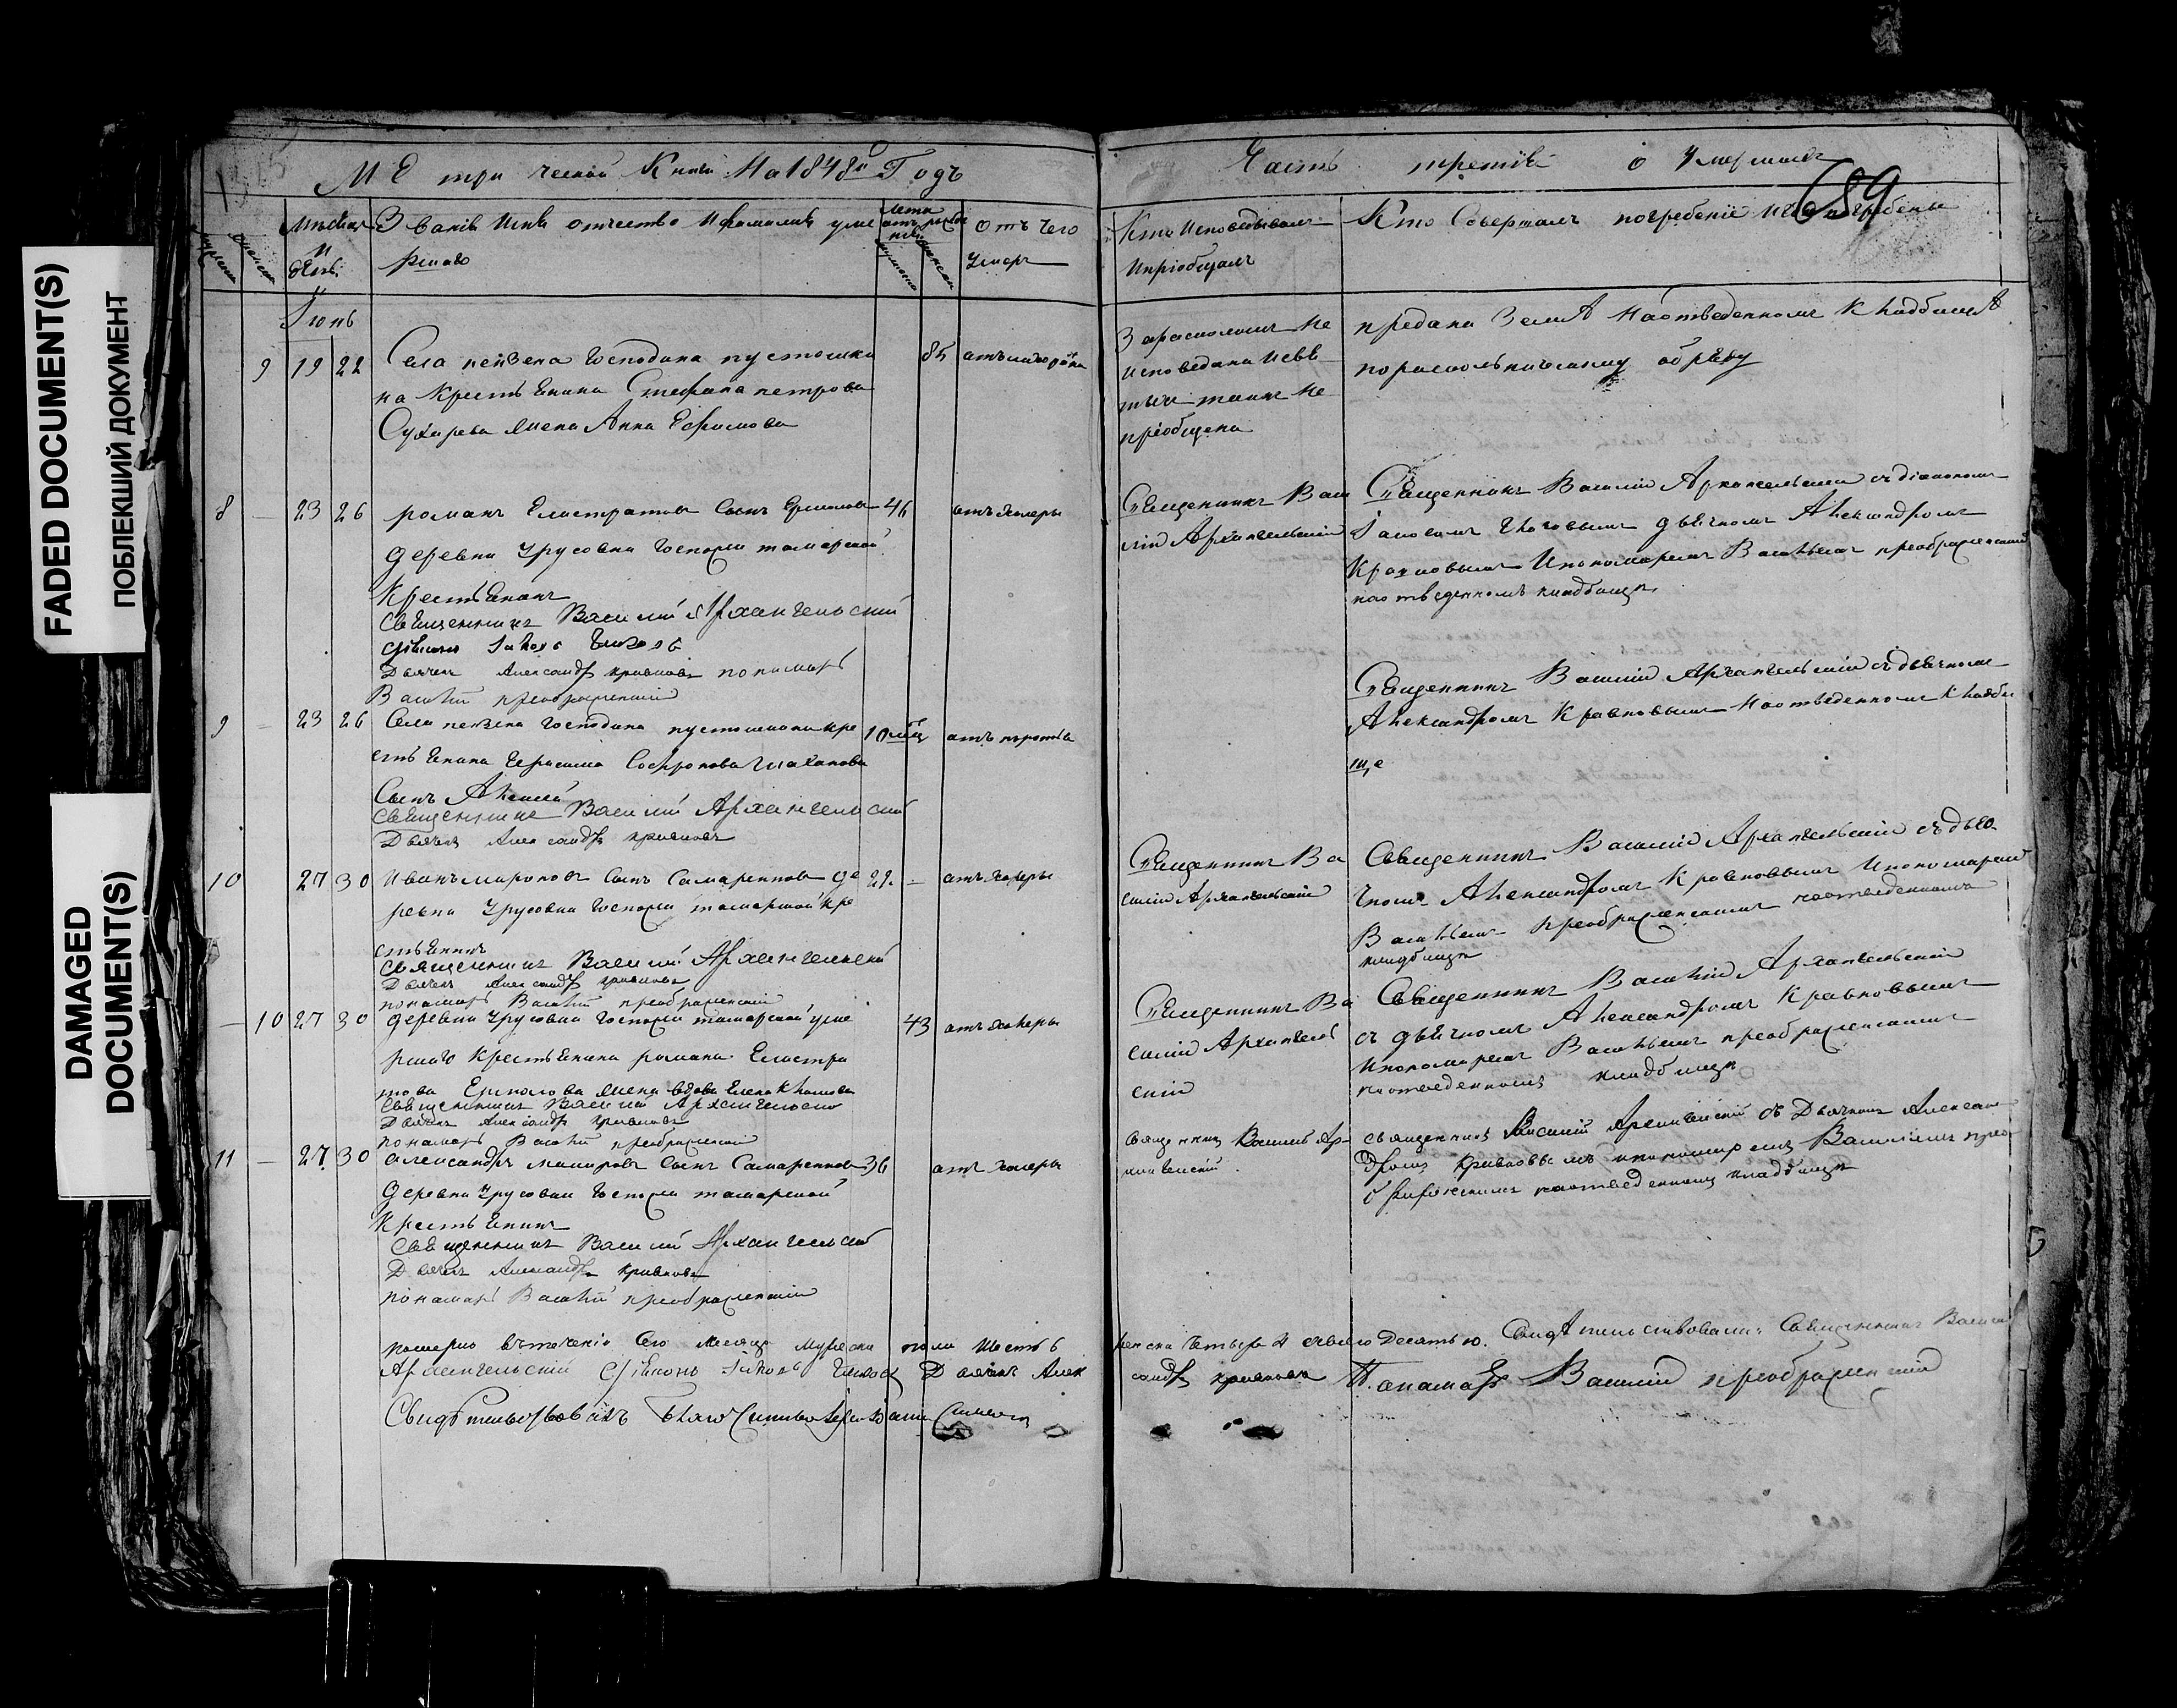 FADED DOCUMENT(S)
ПОБЛЕКШИЙ ДОКУМЕНТ
DAMAGED
DOCUMENT(S)
МЕтрической Книги На 1848й Годъ
Часть третія о Умершихъ
689
Мѣсяцъ
и
день
Званіе Имя отчество и фамилія уме
ршаго
Лета
Отъ чего
умеръ
Кто Исповедывалъ
И пріобщалъ
Кто Совершалъ погребеніе и где погребены
Іюнь
9 19 22
Села
Господина пустошки
на крестьенина Стефана петрова
Сухарева жена Анна Ефимова
85
За расколомъ не
исповедана и св
тыхъ таинъ не
преобщена
предана Земле На отведенномъ Кладбище
по раскольническому обреду
8 – 23 26
романъ Елистратовъ Сынъ Ермолов
деревни Урусовки Госпожи татарской
Крестьенинъ
Священникъ Василий Архангельский
діаконъ Іаковъ
Дьячекъ Александръ кравковъ пономарь
Василій преображенскій
46
отъ холеры
Священникъ Васи
лій Архангельскій
Священникъ Василій Архангельскій съ діакономъ
Іаковомъ дьячкомъ Александромъ
Кравковымъ И пономаремъ Васильемъ преображенскимъ
на отведенномъ кладбище
9 – 23 26
Села Господина пустошкина кре
стьенина Герасима Софронова
Сынъ Алексей
Священникъ Василий Архангельский
Дьячекъ Александръ кравковъ
10 мѣц
Священникъ Василій Архангельскій съ дьячкомъ
Александромъ Кравковымъ На отведенномъ Кладби
ще
10 27 30
Иванъ мироновъ Сынъ Самаренковъ де
ревни Урусовки Госпожи татарской кре
стьенинъ
Священникъ Василий Архангельский
Дьячекъ Александръ кравковъ
пономарь Василій преображенскій
22 –
отъ холеры
Священникъ Ва
силій Архангельскій
Священникъ Василій Архангельскій съ дьяч
комъ Александромъ Кравковымъ И пономаремъ
Васильемъ преображенскимъ на отведенномъ
кладбище
– 10 27 30
деревни Урусовки Госпожи татарской уме
ршаго Крестьенина романа Елистра
това Ермолова жена вдова Елена
Священникъ Василий Архангельский
Дьячекъ Александръ кравковъ
пономарь Василій преображенскій
43
отъ холеры
Священникъ Ва
силій Архангель
скій
Священникъ Василій Архангельскій
съ дьячкомъ Александромъ Кравковымъ
И пономаремъ Васильемъ преображенскимъ
на отведенномъ кладбище
11 – 27 30
александръ Сынъ Самаренковъ
деревни Урусовки Госпожи татарской
Крестьенинъ
Священникъ Василий Архангельский
Дьячекъ Александръ кравковъ
пономарь Василій преображенскій
36
отъ холеры
Священникъ Василій Ар
хангельскій
священникъ Василій Архангельскій съ Дьячкомъ Алексан
дромъ Кравковымъ и пономаремъ Васильемъ прео
браженскимъ на отведенномъ кладбище
померло въ теченіе Сего Месяца Мужеска пола Шесть
женска Четыре Десять. Свидѣтельствовали: Священникъ Василій
Архангельский діаконъ Іаковъ Дьячекъ Алек
сандръ кравковъ Пономарь Василій преображенскій
Свидѣтельствовалъ